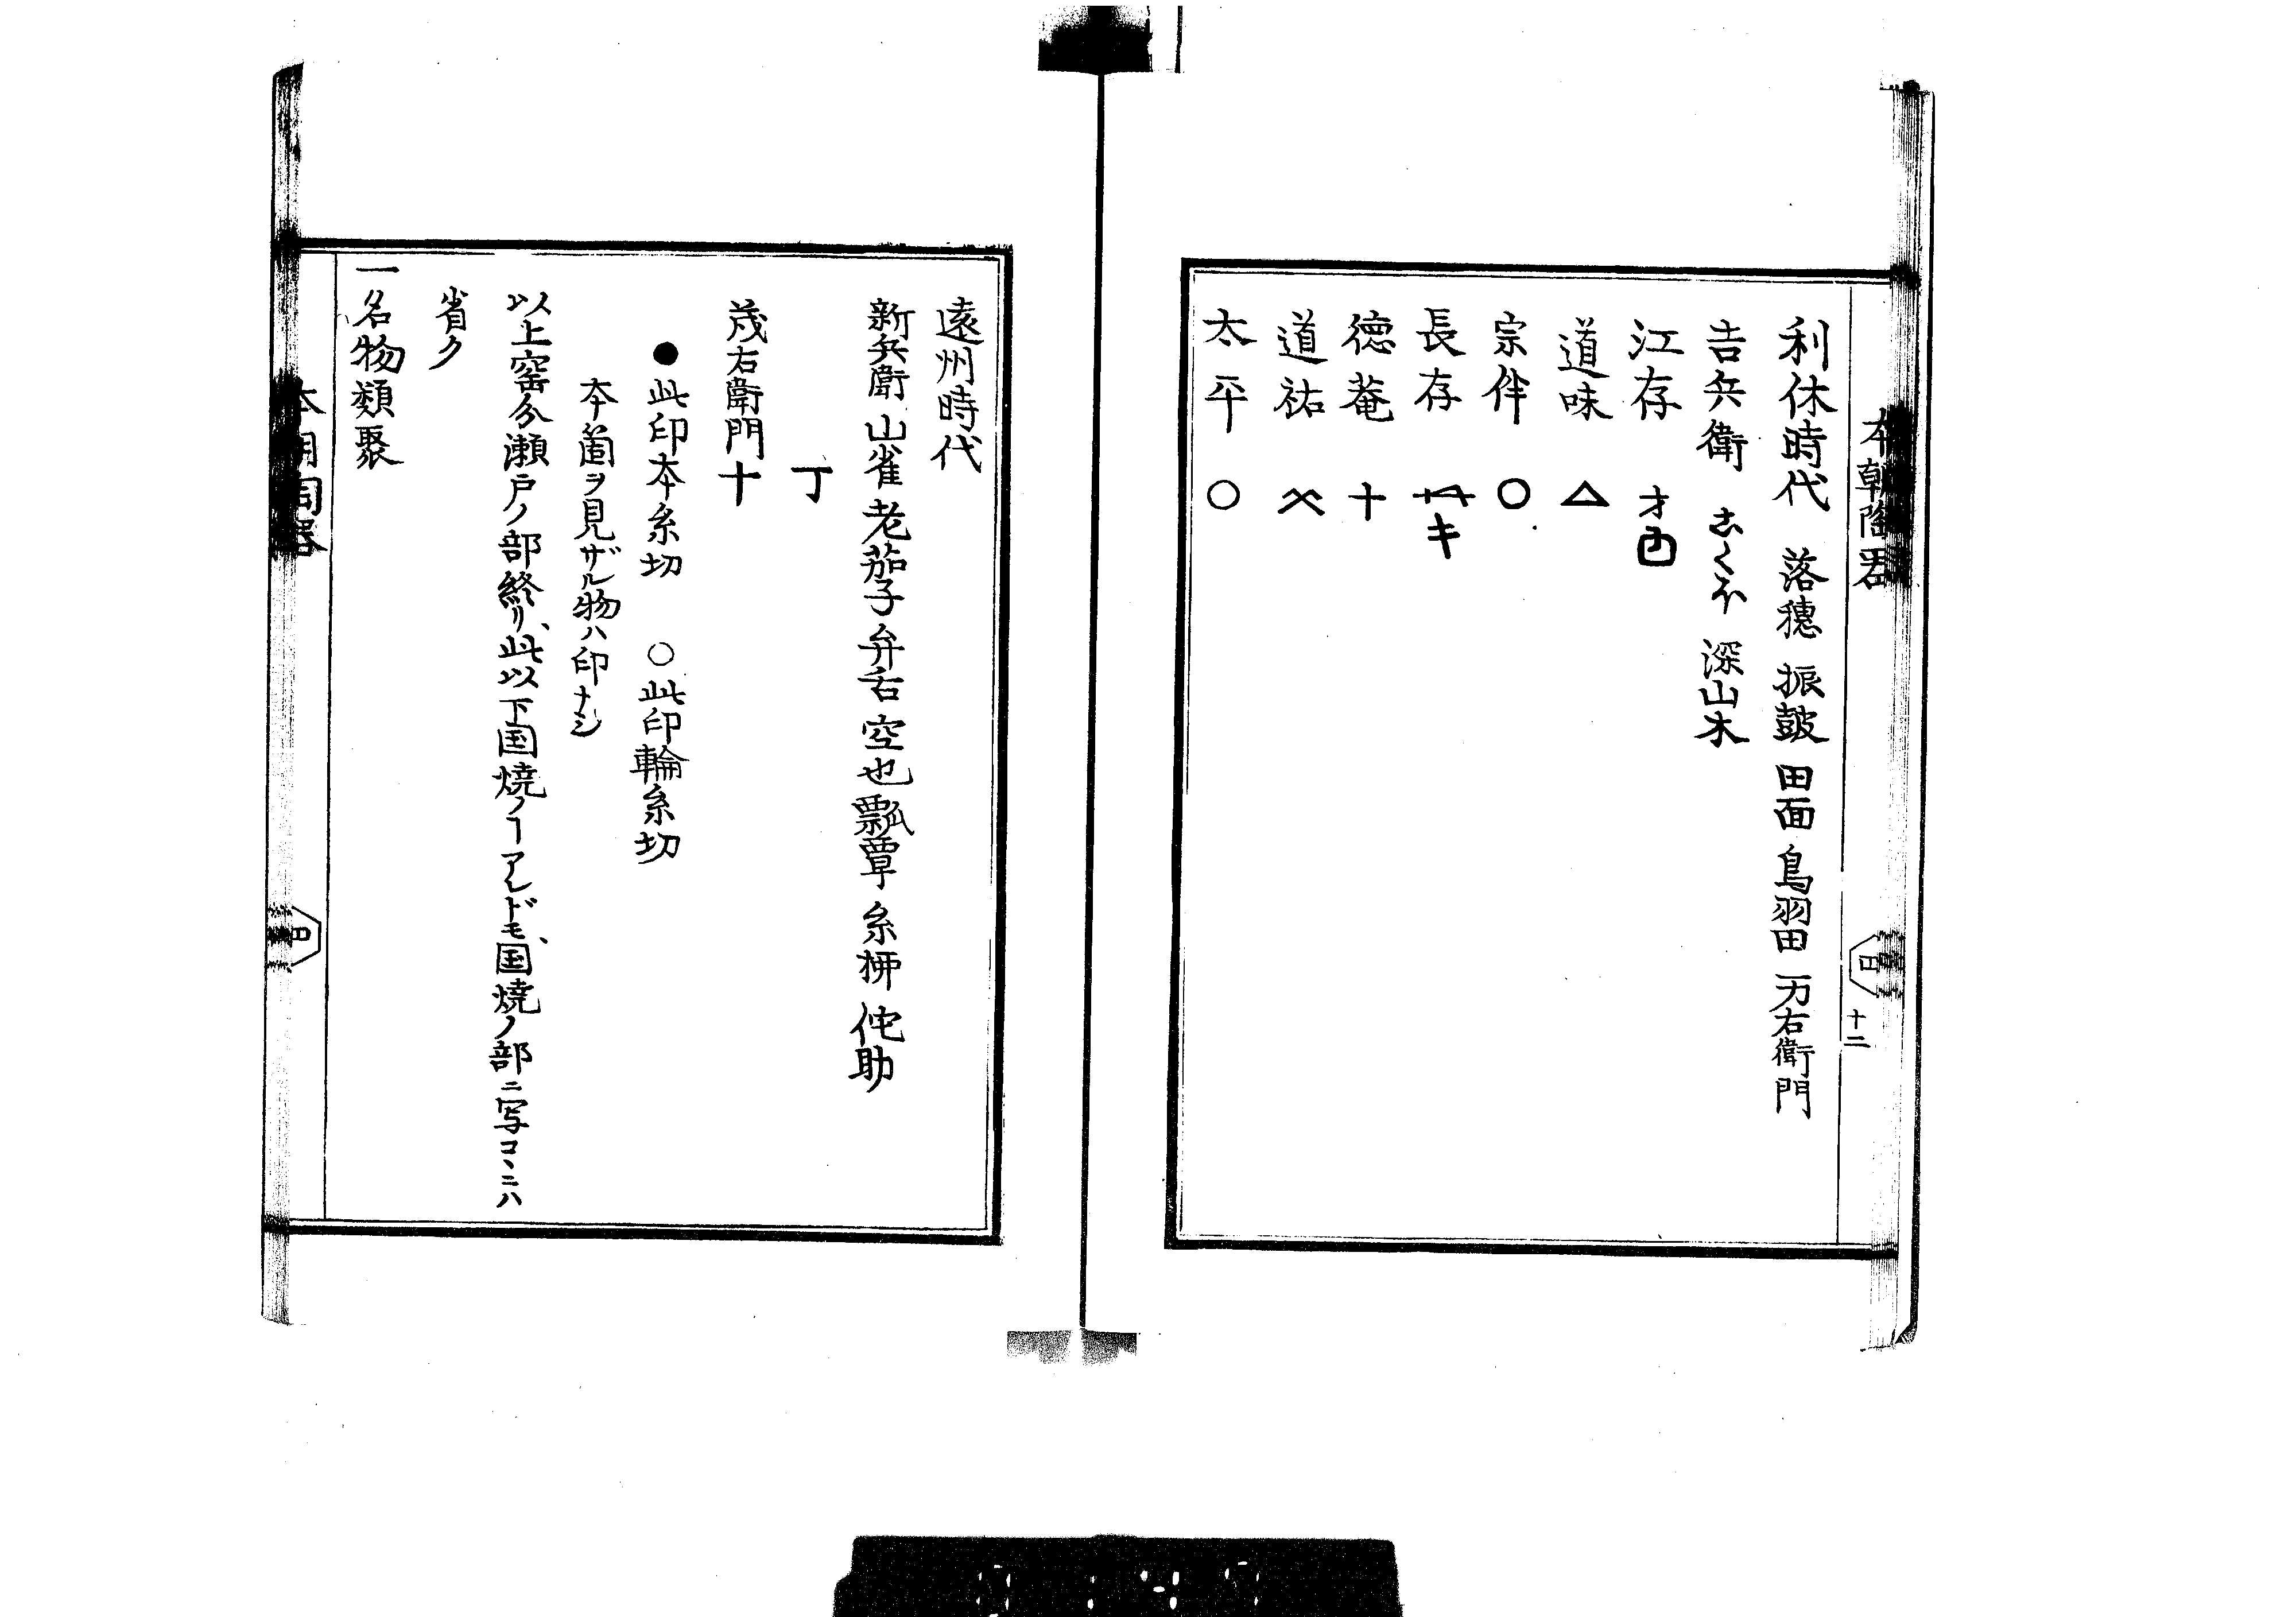 利休時代 落穂 振鼓 田面 鳥羽田 万右衛門
吉兵衛 深山木
江存
道味 △
宗伴 ○
長存
徳菴 十
道祐
太平 ○
十二
遠州時代
新兵衛 山雀 老茄子 弁舌 空也 瓢箪 糸柳 侘助
丁
茂右衛門 十
● 此印本糸切 ○此印輪糸切
本箇ヲ見ザル物ハ印ナシ
以上窯分瀬戸ノ部終リ、此以下国焼ノヿアレドモ、国焼ノ部ニ写コヽニハ
省ク
一名物類聚